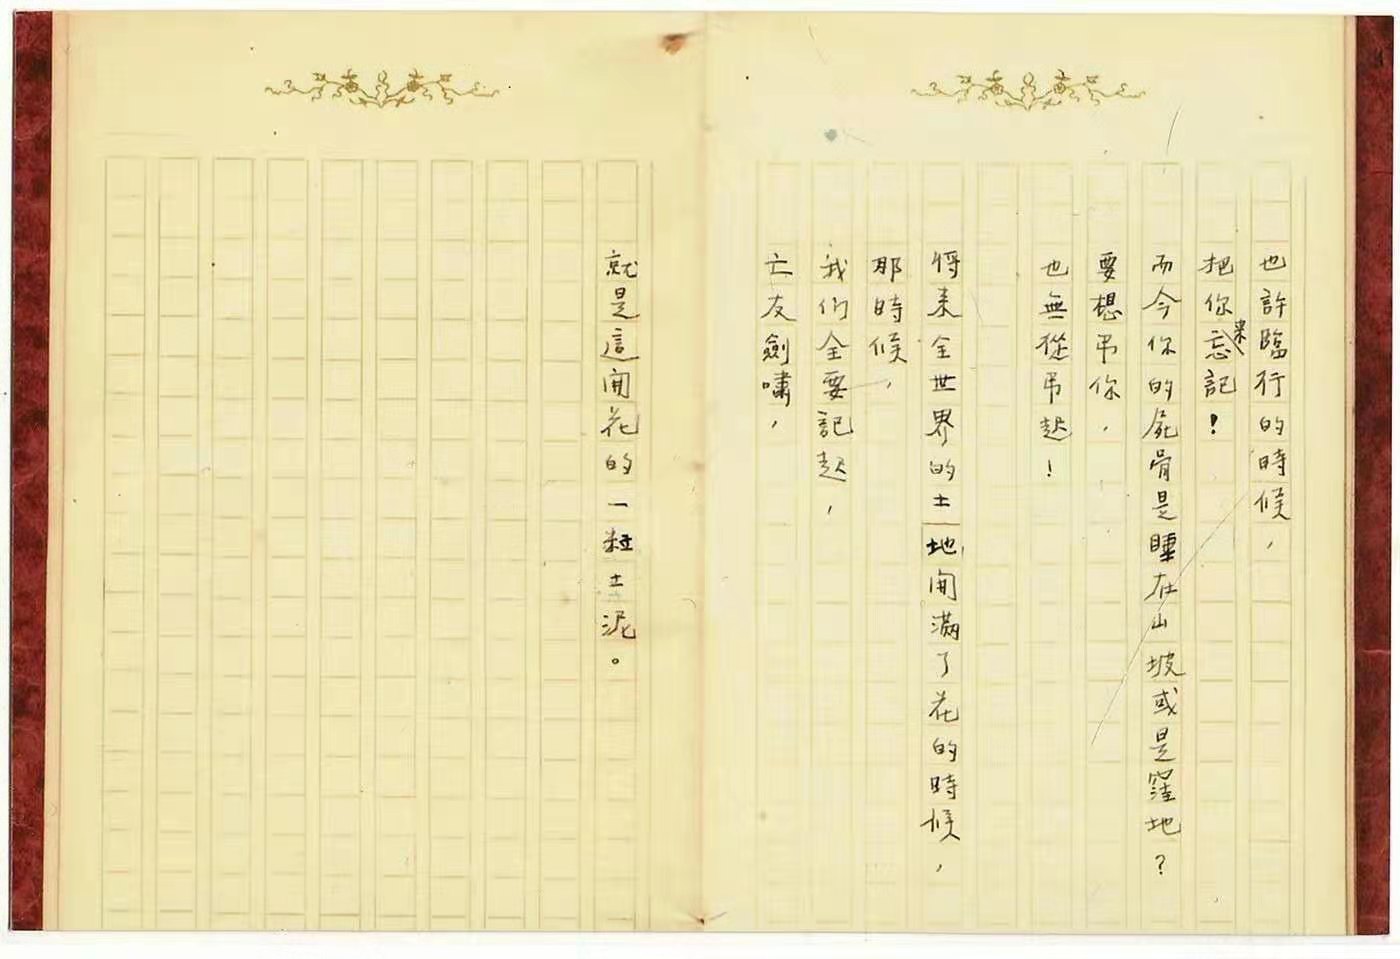 也許臨行的時候，
把你忘記！
而今你的屍骨是睡在山坡或是窪地？
要想弔你，
也無從弔起！
將來全世界的土地開滿了花的時候，
那時候，
我們全要記起，
亡友劍嘯，
就是這開花的一粒土泥。